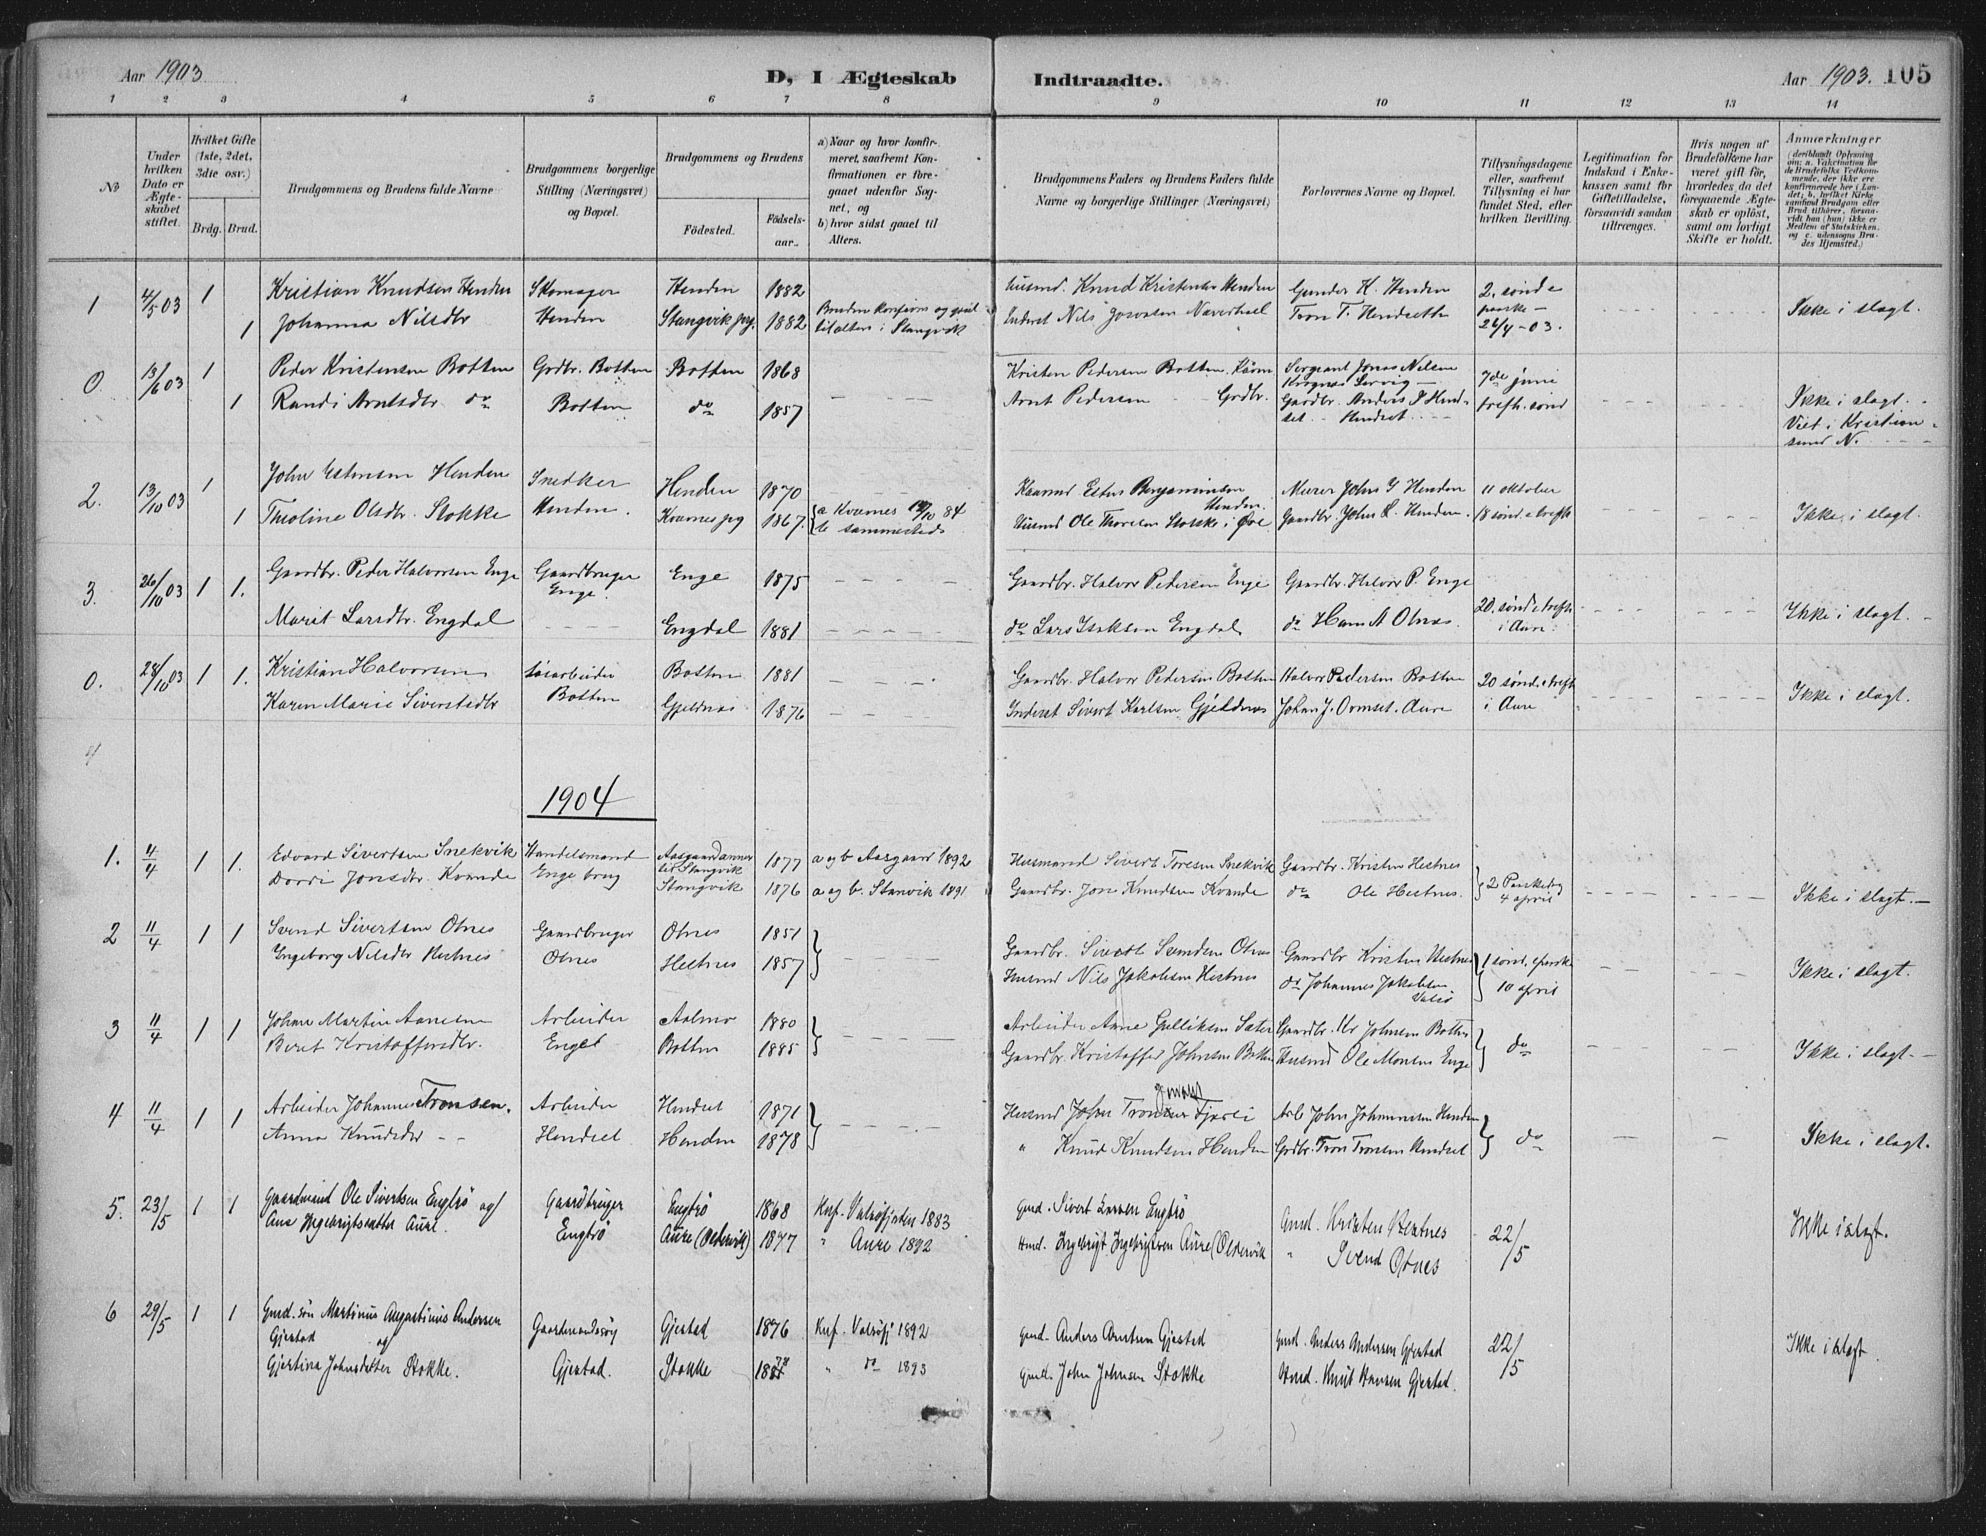 Aar 1903
D, I Ægteskab Indtraadte.
Aar 1903. 105
1 2 3 4 5 6 7 8 9 10 11 12 13 14
No
Under hvilken Dato er Ægteskabet stiftet.
Hvilket Gifte (1ste, 2det, 3die osv.)
Brdg. Brud.
Brudgommens og Brudens fulde Navne
Brudgommens borgerlige Stilling (Næringsvei) og Bopæl.
Brudgommens og Brudens
Födested. Födselsaar.
a) Naar og hvor konfirmeret, saafremt Konfirmationen er foregaaet udenfor Sognet, og
b) hvor sidst gaaet til Alters.
Brudgommens Faders og Brudens Faders fulde Navne og borgerlige Stillinger (Næringsvei)
Forlovernes Navne og Bopæl.
Tillysningsdagene eller, saafremt Tillysning ei har fundet Sted, efter hvilken Bevilling.
Legitimation for Indskud i Enkekassen samt for Giftetilladelse, forsaavidt saadan tiltrænges.
Hvis nogen af Brudefolkene har været gift før, hvorledes da det foregaaende Ægteskab er oplöst, samt om lovligt Skifte er holdt.
Anmærkninger
1 4/5 03 1 Kristian Knudsen Henden Skomager Henden 1882 Husmd. Knud Kristensen Henden Gunder K. Henden 2. sönd e
1 Johanna Nilsdtr Henden Stangvik prg. 1882 Bruden konfirm og gaat til alters i Stangvik Inderst Nils Tron T. Hendseth paaske 26/4-03. Ikke i slagt.
0. 13/6 03 1 Peder Kristensen Botten Grdbr. Botten Botten 1868 Kristen Pedersen Botten Sergeant Jonas Nilsen 7de juni
1 Randi Arntsdtr do Botten do 1857 Arnt Pedersen Grdbr. Gaardbr. Anders P Hendset trefh. sönd Ikke i slagt.
Viet i Kristiansund N.
2. 13/10 03 1 John Estensen Henden Snedker Henden 1870 Benjaminsen Henden Murer John Henden 11 oktober
1 Theoline Olsdtr. Stokke Henden. Kvarnes pg 1867 a Kvarnes 84 b sammesteds Husmd Ole Thoresen Stokke i Öre Gaardbr. John L. Henden. 18 sönd e trefh Ikke i slagt.
3. 26/10 03 1 1. Gaardbr. Peder Halvorsen Enge Gaardbruger Enge. Enge 1875 Gaardbr. Halvor Pedersen Enge Gaardbr. Halvor P. Enge
Marit Larsdtr. Engdal Engdal 1881 do Lars Isaksen Engdal do Hans A Otnes. 20. sönd e trefh i Aure. Ikke i slagt.
0. 28/10 03 1 1. Kristian Halvorsen Botten Botten 1881 Gaardbr. Halvor Pedersen Botten Halvor Pedersen Botten 20 sönd. e trefh
Karen Marie Sivertsdtr Gjeldnes 1876 Inderst Sivert Karlsen Gjeldnes Johan J. Ormset. Aure i Aure Ikke i slagt.
4
1904
1. 4/4 1 1. Edvard Sivertsen Snekvik Handelsmand Aasgaard annex til Stangvik 1877 a og b Aasgaard 1892 Husmand Sivert Toresen Snekvik Gaardbr. Kristen Hestnes 2 Paaskedag
Dordi Jonsdtr. Kvande Enge brug Stangvik 1876 a og b. Stanvik 1891 Gaardbr. Jon Knudsen Kvande do Ole Hestnes. 4 april Ikke i slagt.
2 11/4 1 1 Svend Sivertsen Otnes Gaardbruger Otnes 1851 Gaardbr. Sivert Svendsen Otnes Gaardbr Kristen Hestnes 1 sönd. e paaske
Ingeborg Nilsdtr Hestnes Otnes Hestnes 1857 Husmd Nils Jakobsen Hestnes do Johannes Jakobsen Valsö 10 april Ikke i slagt.
3 11/4 1 1 Johan Martin Aanesen Arbeider Aalmo 1880 Arbeider Aane Gulliksen Sæter Gaardbr. Johnsen Botten do
Beret Kristoffersdtr. Enget Botten 1885 Gaardbr. Kristoffer Johnsen Botten Husmd Ole Monsen Enge Ikke i slagt.
4 11/4 1 1 Arbeider Johannes Tronsen. Arbeider Hendset 1871 Husmd John Tronsen Fjorli Arb John Johannesen Henden do
Anna Knudsdtr Hendset Henden 1878 " Knud Knudsen Henden Grdbr. Tron Tronsen Hendset Ikke i slagt.
5. 23/5 1 1 Gaardmand Ole Sivertsen Engtrö og Gaardbruger Engtrö 1868 Knf. Valsöfjorden 1883 Gmd. Sivert Larsen Engtrö Gmd. Kristen Hestnes 22/5
Ane Ingebrigtsdatter Aure. Engtrö Aure (Oldervik) 1877 " Aure 1892 Hmd. Ingebrigt Ingebrigtsen Aure (Oldervik " Svend Otnes Ikke i slagt.
6 29/5 1 1 Gmd. sön Martinus Augustinus Andersen Gjestad og Gaardmandssön Gjestad 1876 Knf. Valsöfj. 1892 Gmd. Anders Arntsen Gjestad Gmd. Anders Andersen Gjestad 22/5
Gjertina Johnsdatter Stokke. Gjestad. Stokke " do 1893 Gmd. John Johnsen Stokke Hmd. Knut Hansen Gjestad. Ikke i slagt.